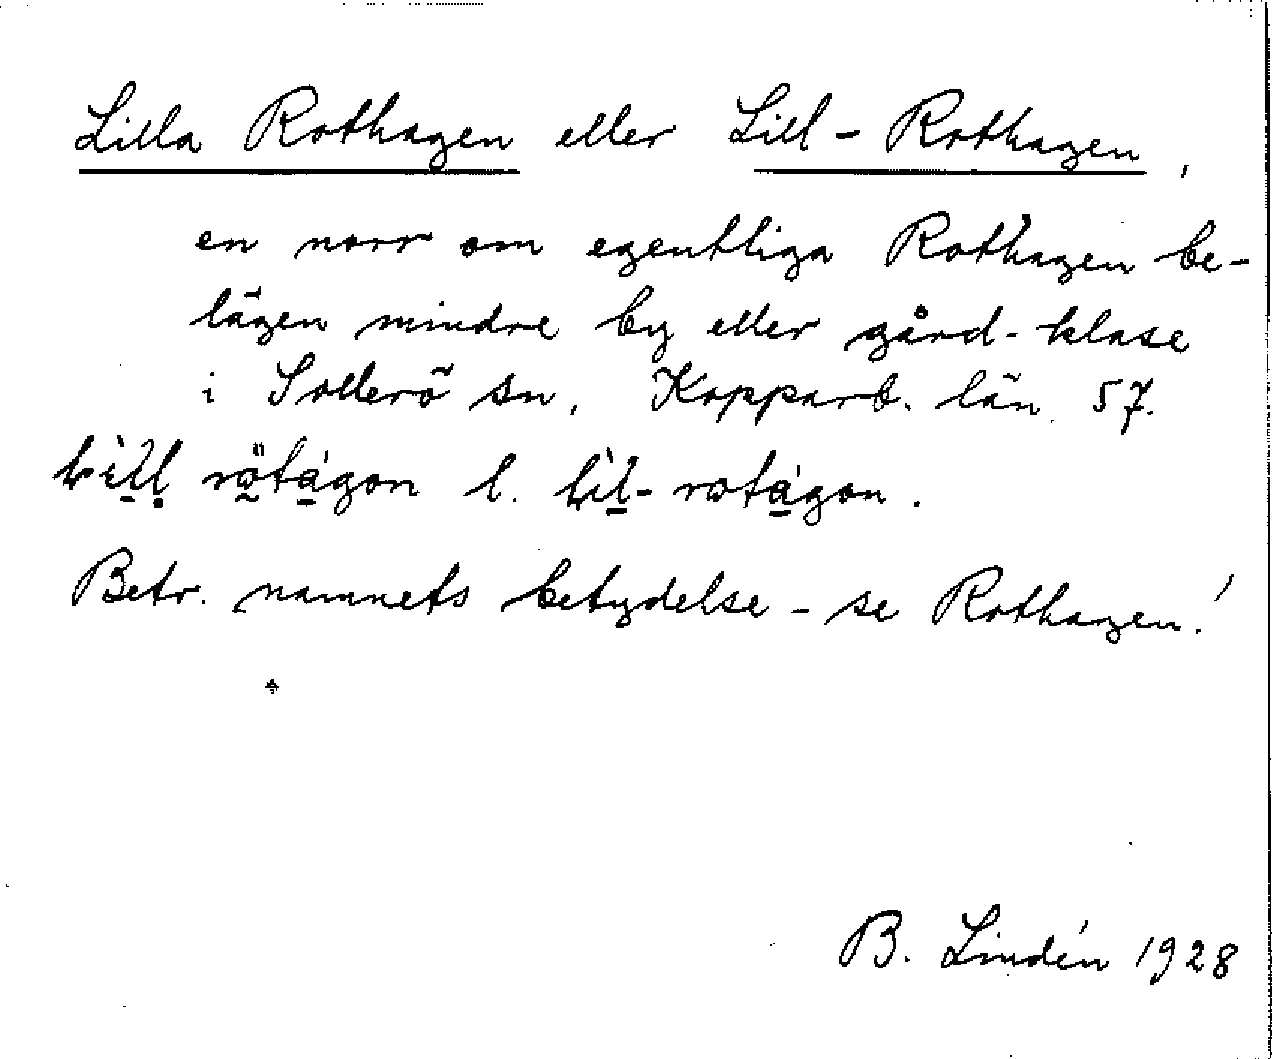 Lilla Rothagen eller Lill-Rothagen,
en norr om egentliga Rothagen be-
lägen mindre by eller gård-klase
i Sollerö sn, Kopparb. län 57.
l.
Betr. namnets betydelse - se Rothagen!
B. Lindén 1928